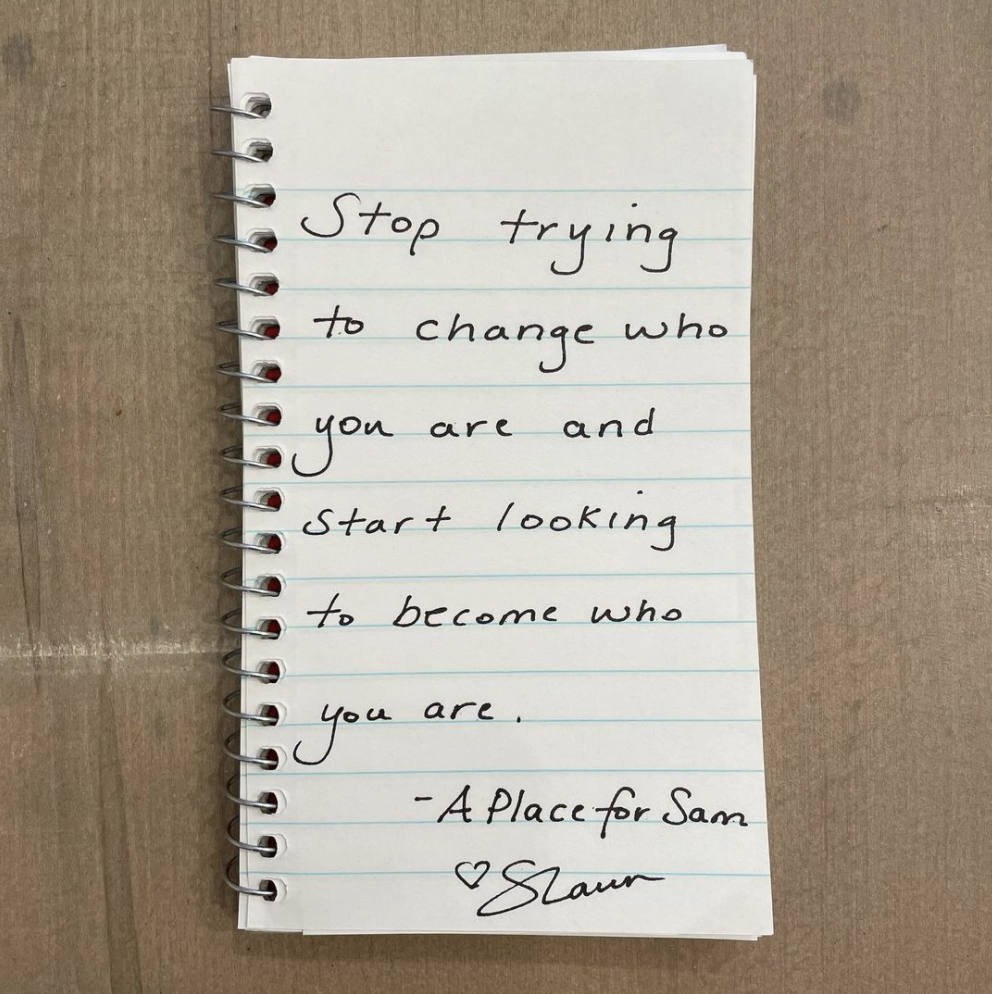 Stop trying
to change who
you are and
start looking
to become who
you are.
- A Place for Sam
♡ Shawn